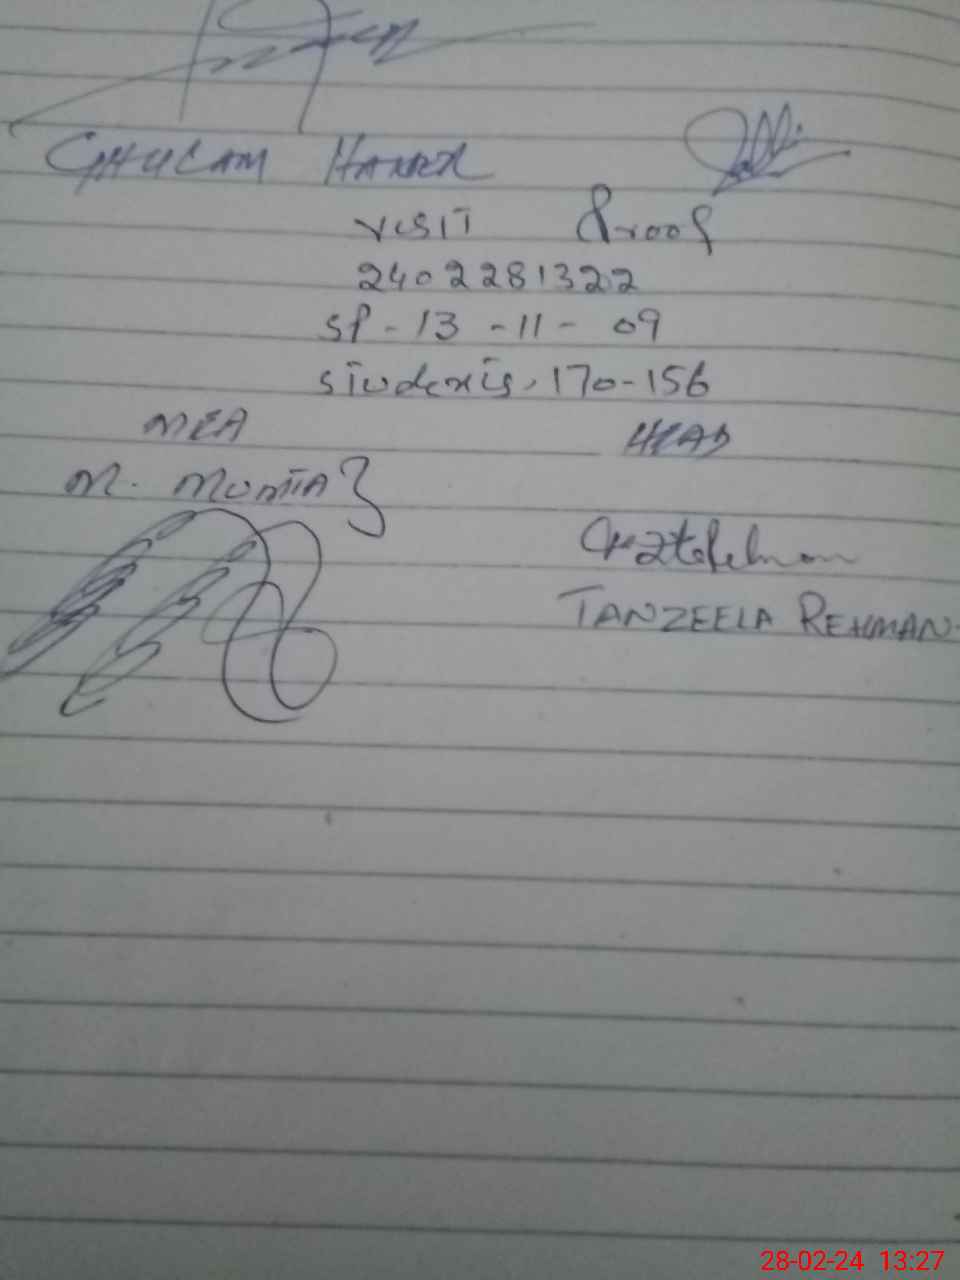 GHULAM
VISIT Proof
2402281322
SP - 13 - 11 - 09
Students, 170-156
MEA HEAD
M. MUMTAZ
TANZEELA REHMAN
28-02-24 13:27